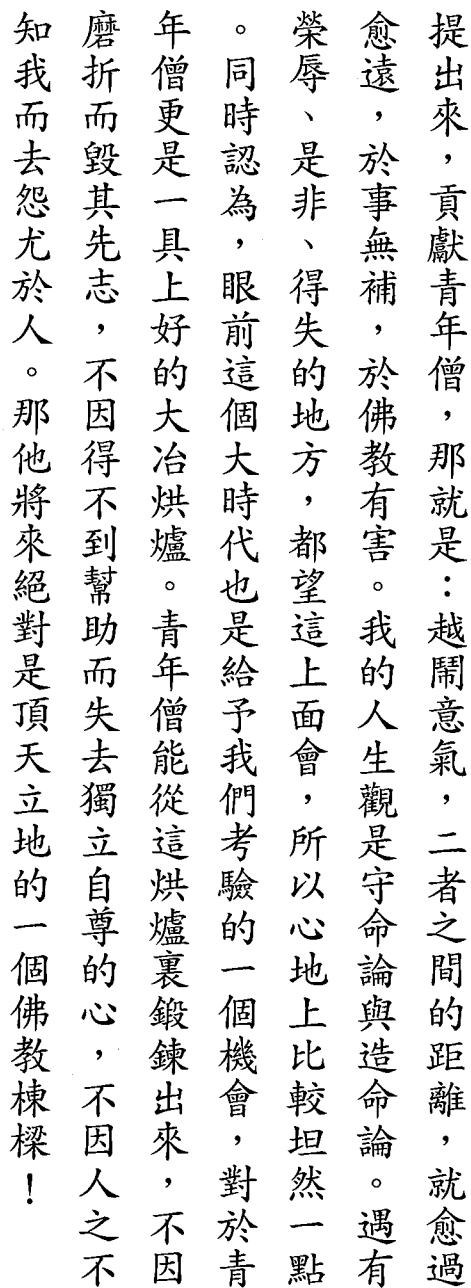 提出來，貢獻青年僧，那就是：越鬧意氣，二者之間的距離，就愈過
愈遠，於事無補，於佛教有害。我的人生觀是守命論與造命論。遇有
榮辱、是非、得失的地方，都望這上面會，所以心地上比較坦然一點
。同時認為，眼前這個大時代也是給予我們考驗的一個機會，對於青
年僧更是一具上好的大冶烘爐。青年僧能從這烘爐裏鍛鍊出來，不因
磨折而毀其先志，不因得不到幫助而失去獨立自尊的心，不因人之不
知我而去怨尤於人。那他將來絕對是頂天立地的一個佛教棟樑！